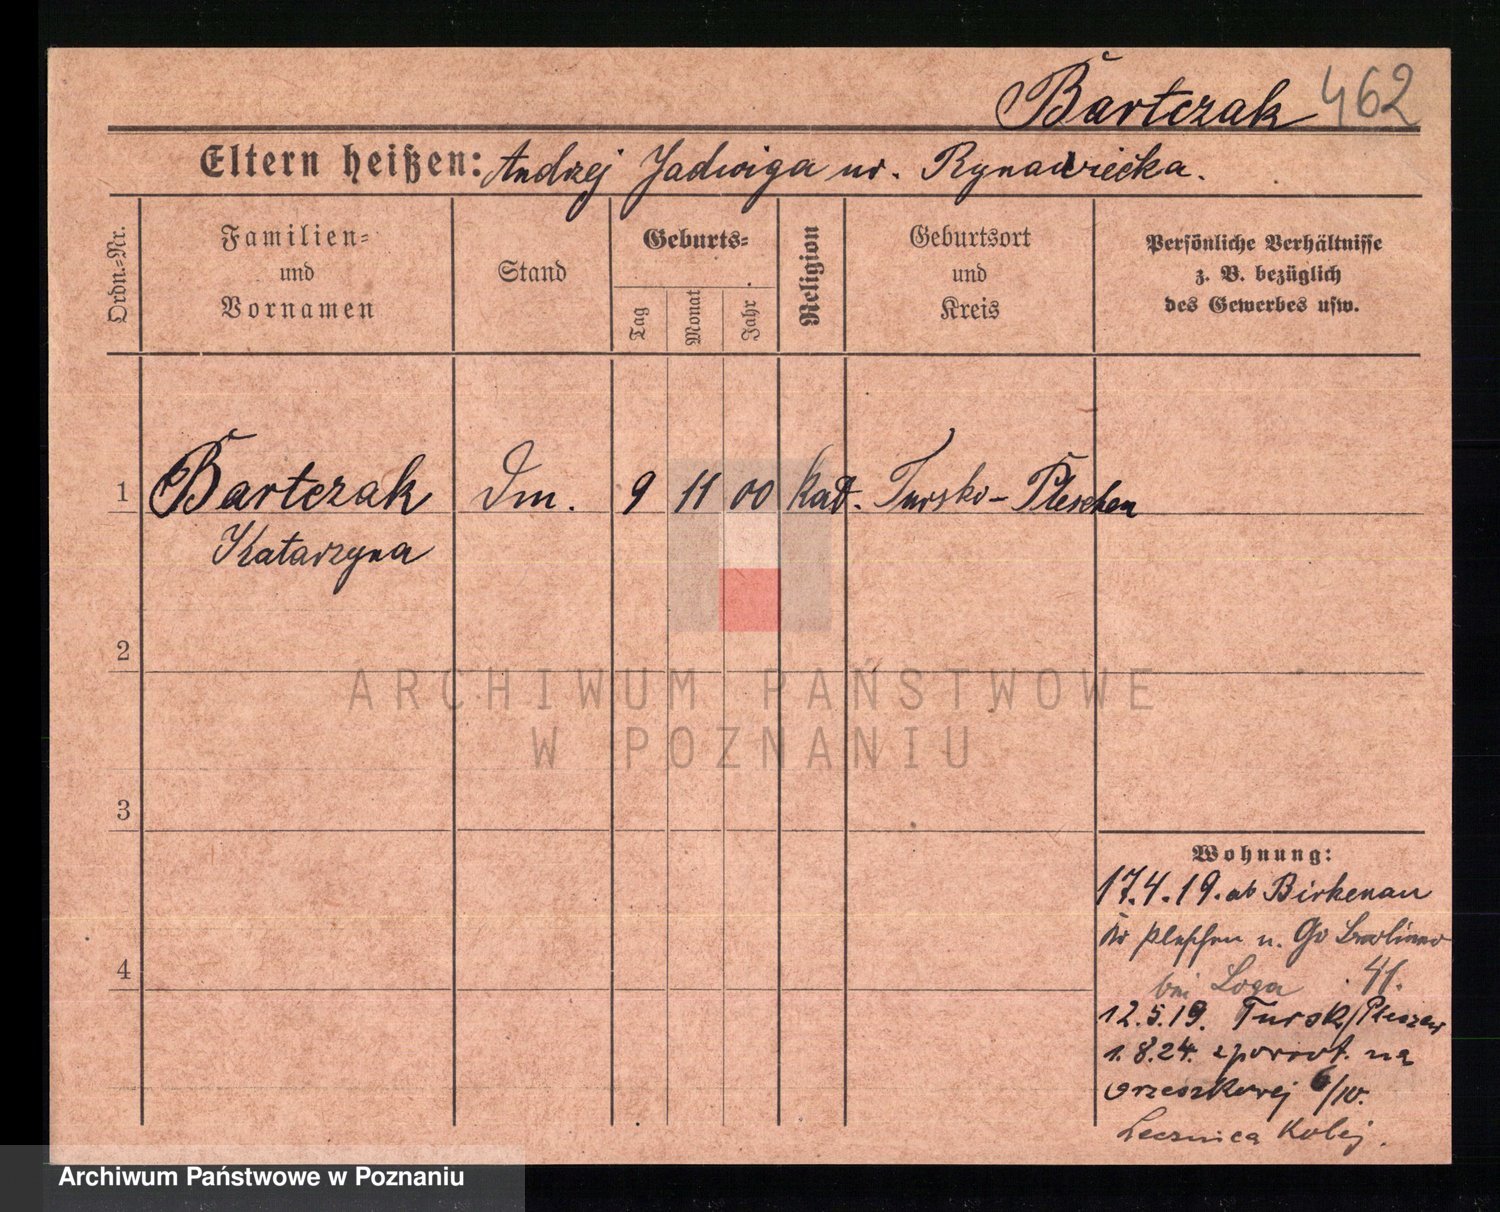 Bartczak 462
Eltern heißen: Andrzej Jadwiga ur.
Ordn.=Nr.
Familien=
und
Vornamen
Stand
Geburts=
Tag
Monat
Jahr
Religion
Geburtsort
und
Kreis
Persönliche Verhältnisse
z. B. bezüglich
des Gewerbes usw.
1 Bartczak Dm. 9 11 00 Kat. Tursko - Pleschen
Katarzyna
2
ARCHIWUM PAŃSTWOWE
W POZNANIU
3
Wohnung:
17.4.19. ab Birkenau
Kr Pleschen n.
4
bei Loga 41.
12.5.19. Tursk/Pleszew
1.8.24. zpowrot. na
Orzeszkowej 6/IV.
Lecznica Kolej.
Archiwum Państwowe w Poznaniu